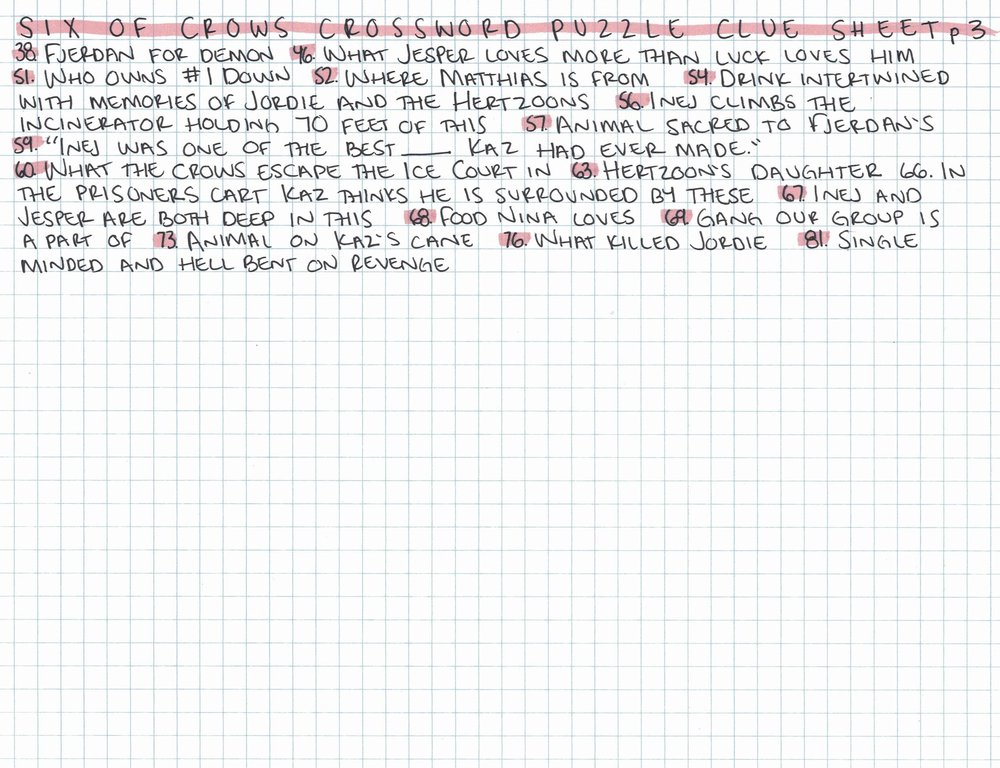 SIX OF CROWS CROSSWORD PUZZLE CLUE SHEET p 3
38. FJERDAN FOR DEMON 46. WHAT JESPER LOVES MORE THAN LUCK LOVES HIM
51. WHO OWNS #1 DOWN 52. WHERE MATTHIAS IS FROM 54. DRINK INTERTWINED
WITH MEMORIES OF JORDIE AND THE HERTZOONS 56. INEJ CLIMBS THE
INCINERATOR HOLDING 70 FEET OF THIS 57. ANIMAL SACRED TO FJERDAN'S
59. "INEJ WAS ONE OF THE BEST ____ KAZ HAD EVER MADE."
60. WHAT THE CROWS ESCAPE THE ICE COURT IN 63. HERTZOON'S DAUGHTER 66. IN
THE PRISONERS CART KAZ THINKS HE IS SURROUNDED BY THESE 67. INEJ AND
JESPER ARE BOTH DEEP IN THIS 68. FOOD NINA LOVES 69. GANG OUR GROUP IS
A PART OF 73. ANIMAL ON KAZ'S CANE 76. WHAT KILLED JORDIE 81. SINGLE
MINDED AND HELL BENT ON REVENGE